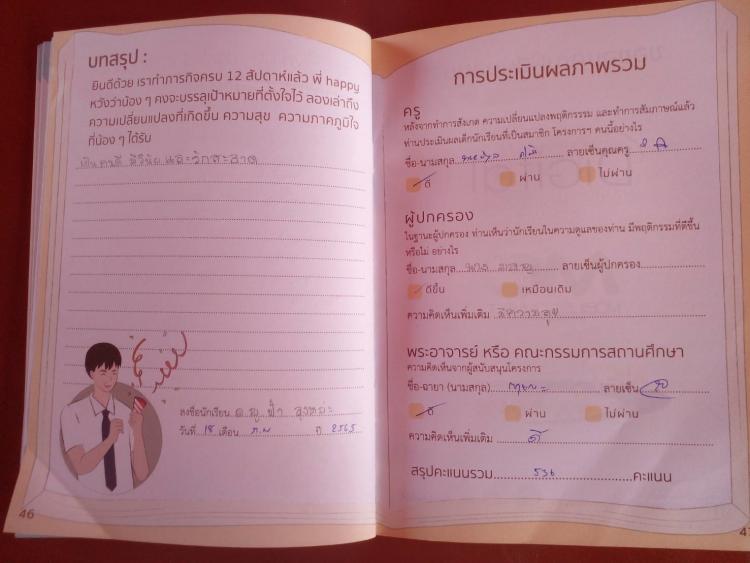 บทสรุป :
ยินดีด้วย เราทำภารกิจครบ 12 สัปดาห์แล้ว พี่ happy
หวังว่าน้อง ๆ คงจะบรรลุเป้าหมายที่ตั้งใจไว้ ลองเล่าถึง
ความเปลี่ยนแปลงที่เกิดขึ้น ความสุข ความภาคภูมิใจ
ที่น้อง ๆ ได้รับ
เป็นคนดี มีวินัย และรักสะอาด
ลงชื่อนักเรียน ด.ญ. ฟ้า
วันที่ 18 เดือน ก.พ ปี 2565
46
การประเมินผลภาพรวม
ครู
หลังจากทำการสังเกต ความเปลี่ยนแปลงพฤติกรรม และทำการสัมภาษณ์แล้ว
ท่านประเมินผลเด็กนักเรียนที่เป็นสมาชิก โครงการฯ คนนี้อย่างไร
ชื่อ-นามสกุล ลายเซ็นคุณครู
ดี ผ่าน ไม่ผ่าน
ผู้ปกครอง
ในฐานะผู้ปกครอง ท่านเห็นว่านักเรียนในความดูแลของท่าน มีพฤติกรรมที่ดีขึ้น
หรือไม่ อย่างไร
ชื่อ-นามสกุล ลายเซ็นผู้ปกครอง
ดีขึ้น เหมือนเดิม
ความคิดเห็นเพิ่มเติม มีความสุข
พระอาจารย์ หรือ คณะกรรมการสถานศึกษา
ความคิดเห็นจากผู้สนับสนุนโครงการ
ชื่อ-ฉายา (นามสกุล) ลายเซ็น
ดี ผ่าน ไม่ผ่าน
ความคิดเห็นเพิ่มเติม ดี
สรุปคะแนนรวม 536 คะแนน